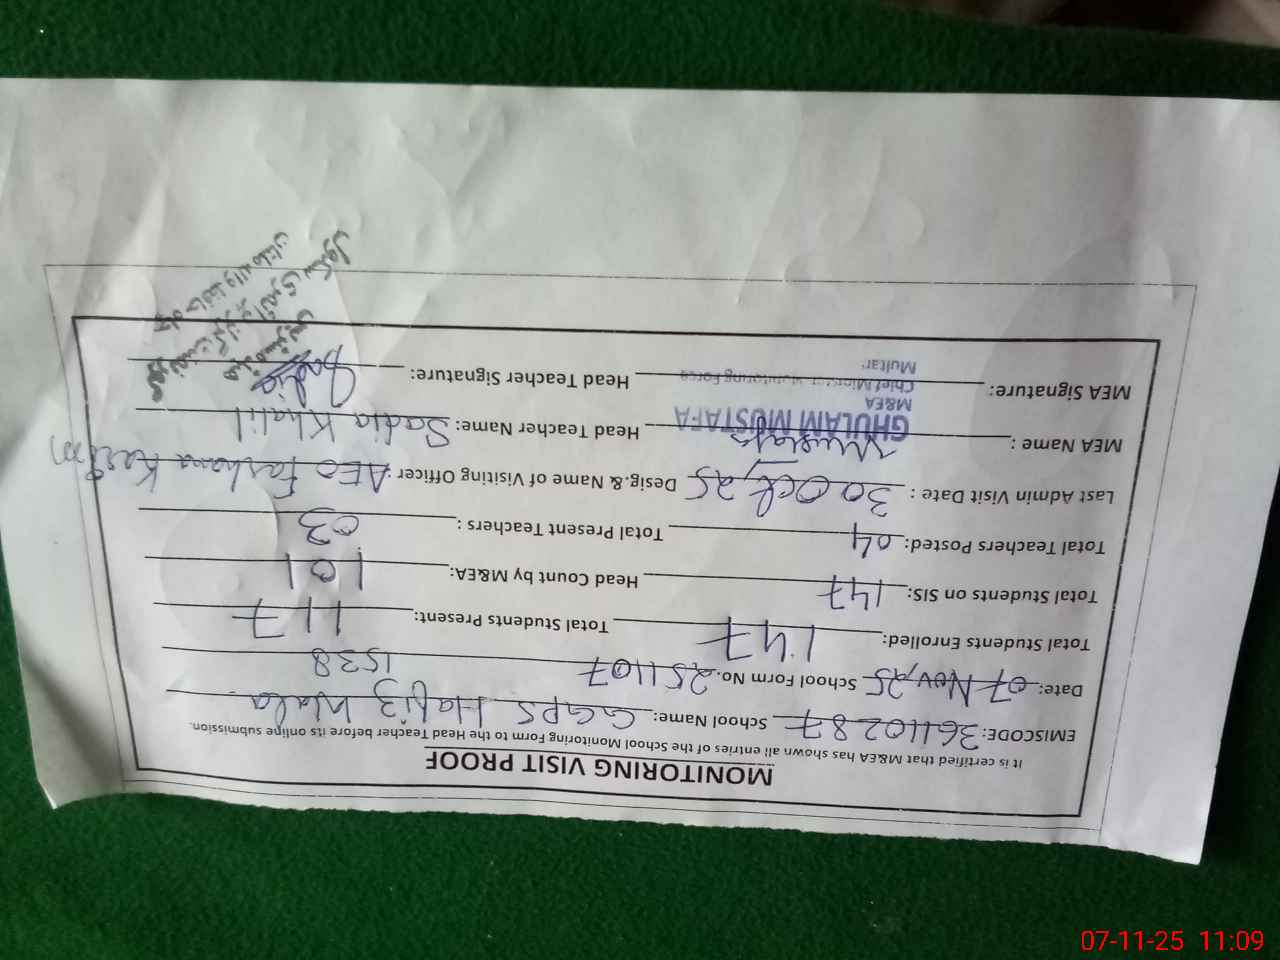 MONITORING VISIT PROOF
It is certified that M&EA has shown all entries of the School Monitoring Form to the Head Teacher before its online submission.
EMISCODE: 36110287 School Name: GGPS Hafiz Wala
Date: 07 Nov, 25 School Form No. 251107 1538
Total Students Enrolled: 147 Total Students Present: 117
Total Students on SIS: 147 Head Count by M&EA: 101
Total Teachers Posted: 04 Total Present Teachers: 03
Last Admin Visit Date: 30 Oct, 25 Desig,& Name of Visiting Officer AEO Farhana Kareem
MEA Name: Mustafa Head Teacher Name: Sadia Khalil
GHULAM MUSTAFA
M&EA
Chief Minister Monitoring Force
Multan
MEA Signature: Head Teacher Signature: Sadia
07-11-25 11:09